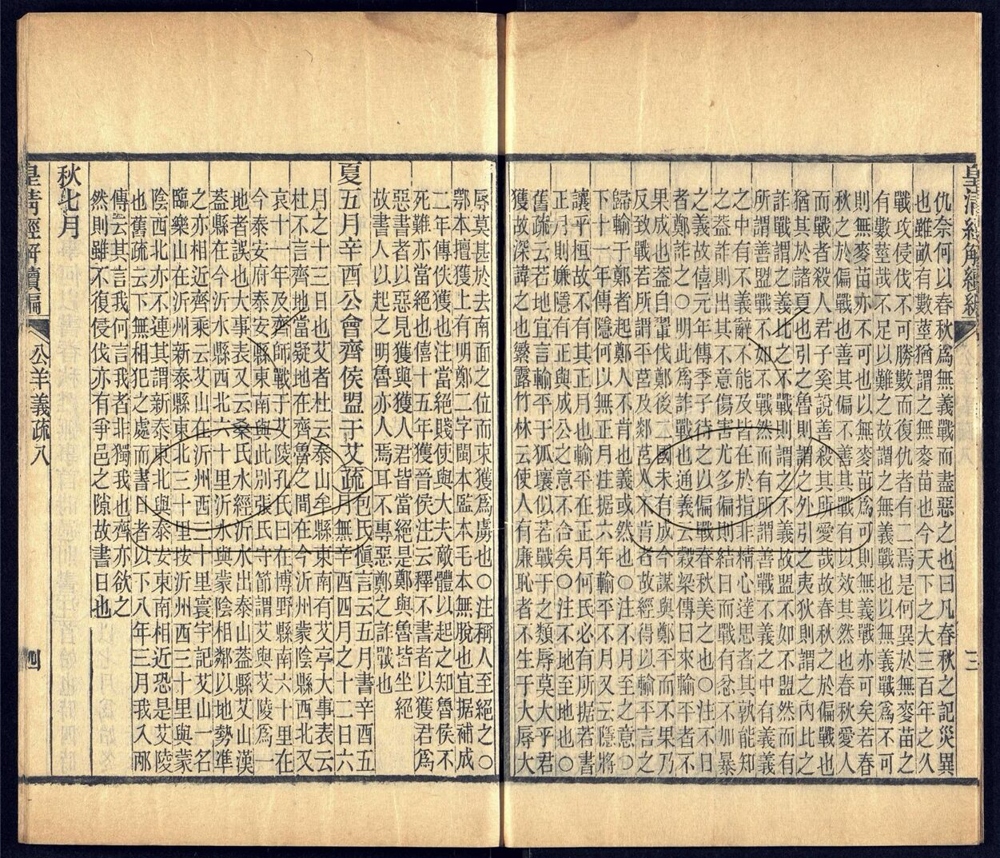 皇清經解續編
三
仇奈何以春秋爲無義戰而盡惡之也曰凡春秋之記災異
也雖畝有數莖猶謂之無麥苗也今天下之大三百年之久
戰攻侵伐不可勝數而復仇者有二焉是何異於無麥苗之
有數莖哉不足以難之故謂之無義戰也以無義戰爲不可
則無麥苗亦不可也以無麥苗爲可則無義戰亦可矣若春
秋之於偏戰也善其偏不善其戰有以效其然也春秋愛人
而戰者殺人君子奚說善殺其所愛哉故春秋之於偏戰也
猶其於諸夏也引之魯則謂之外引之夷狄則謂之內比之
詐戰謂之義比之不戰則謂之不義故盟不如不盟然而有
所謂善盟戰不如不戰然而有所謂善戰不義之中有義義
之中有不義辭不能及皆在於指非精心達思者其孰能知
之葢詐則出其不意傷害尤多偏則結日而戰有忿不加暴
者鄭詐之○隱元年傳季子待之以偏戰春秋美之也○注不日
果成也葢自謂輩伐鄭後二國未有成今謀與鄭平而不果乃
反致戰若所謂平莒及郯莒人不肯者故經得以輸平言之
歸輸于鄭者起鄭人不肯也義或然也○注不月至之意○
下十一年傳隱何以無正月注据六年輸平不月又云隱將
讓乎桓故不有其正月也輸平在正月何氏必有所据若書
正月則嫌隱有正與成公之意不合矣○注不地至地也○
舊疏云若地宜言輸平于狐壤似若戰于之類辱莫大乎君
獲故深諱之也繁露竹林云使人有廉恥者不生于大辱大
辱莫甚於去南面之位而束獲爲虜也○注稱人至絕之○
鄂本擅獲上有明鄭二字閩本監本毛本無脫也宜据補成
二年傳佚獲也注當絕賤使與大夫敵體以起之知魯侯不
死難亦當絕也僖十五年獲晉侯注云釋不書者以獲君爲
惡書者以惡見獲與獲人君皆當絕是鄭與魯皆坐絕
故書人以起之明魯亦人焉耳不專惡鄭之詐戰也
夏五月辛酉公會齊侯盟于艾疏包氏愼言云五月書辛酉五
月無辛酉四月之十二日六
月之十三日也艾者杜云泰山牟縣東南有艾亭大事表云
杜不言齊地當疑地在齊魯之間在今沂州蒙陰縣西北又
哀十一年及齊師戰于艾陵孔氏曰在博野縣南六十里在
今泰安府泰安縣東南與此別張氏守節謂艾與艾陵爲一
地者誤也大事表又云桑氏水經沂水出泰山葢縣艾山漢
葢縣在今沂水縣西北六十里沂水與蒙陰相鄰以地勢準
之亦相近齊乘云艾山在沂州西三十里寰宇記艾山一名
臨樂山在沂州新泰縣東北三十里按沂州西三十里與蒙
陰西北亦不連其謂新泰東北與泰安東南相近恐是艾陵
也舊疏云下無相犯之處而書日者以下八年三月我入邴
傳云其言我何言我者非獨我也齊亦欲之
然則雖不復侵伐亦有爭邑之隙故書日也
秋七月
皇清經解續編
公羊義疏八
四